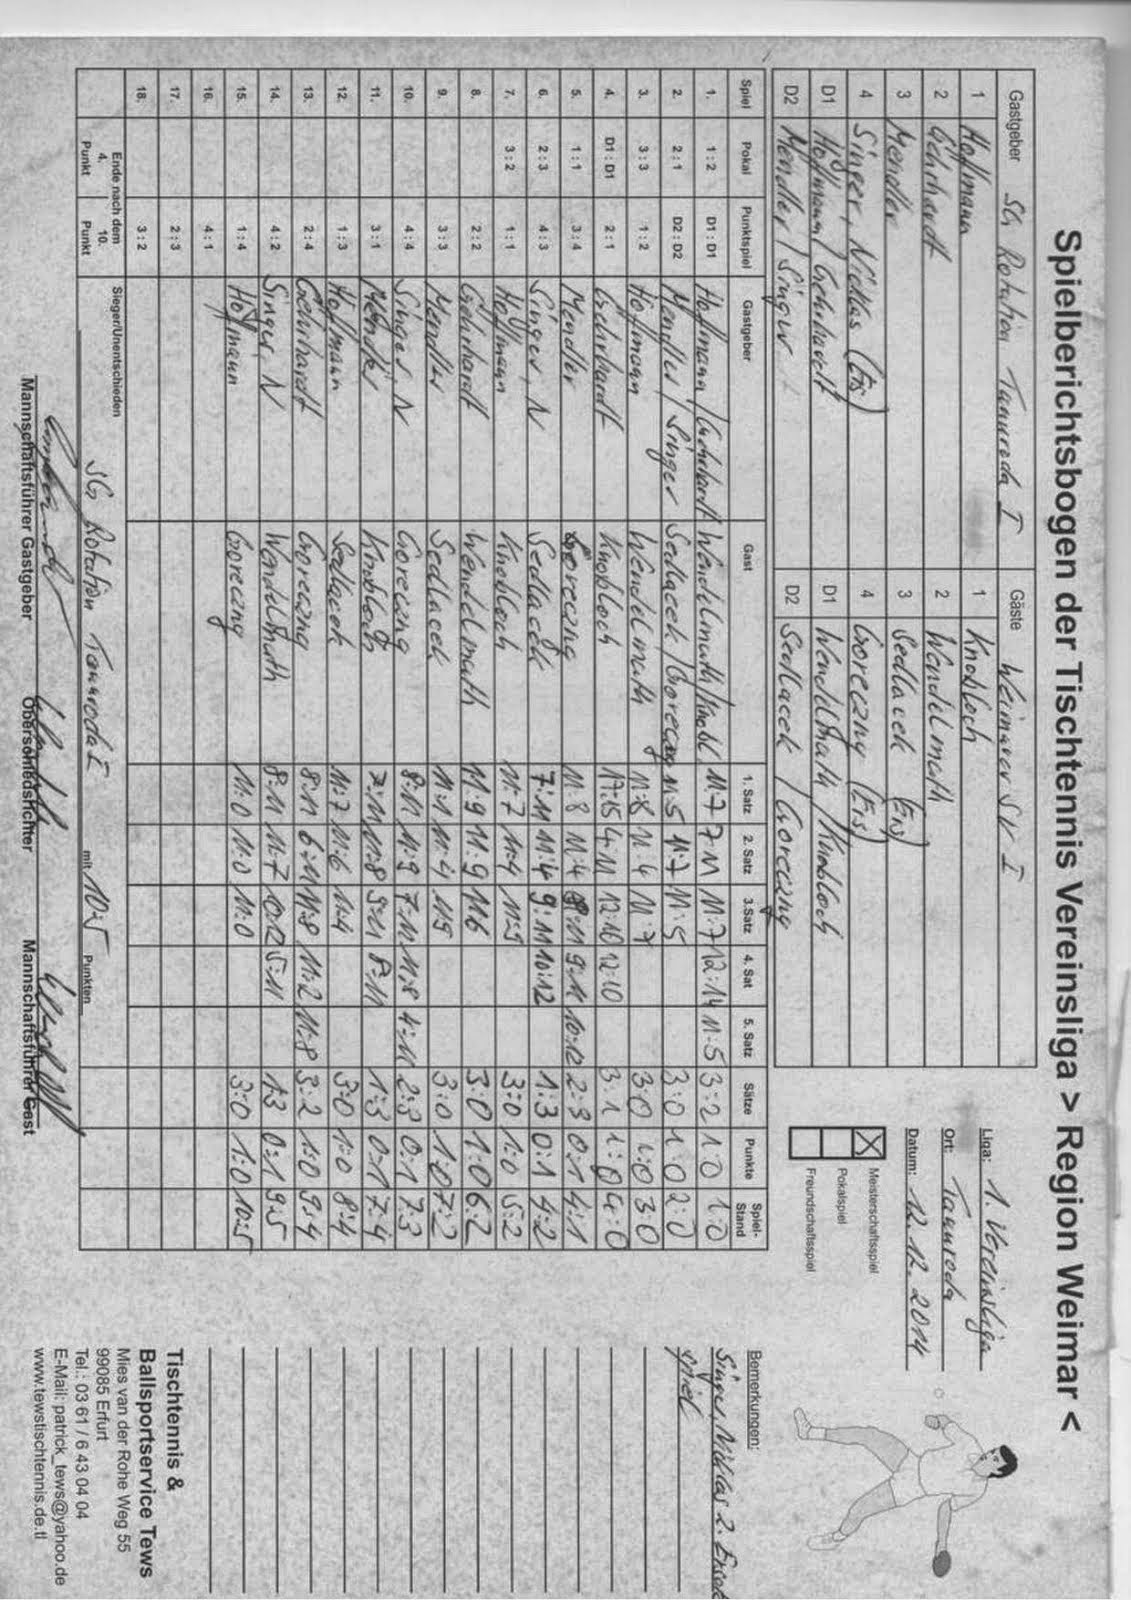 Spielberichtsbogen der Tischtennis Vereinsliga > Region Weimar <
Gastgeber SG Rotation Tannroda I Gäste Weimarer SV I
1 Hoffmann 1 Knobloch
2 Gerhardt 2 Wendelmuth
3 Mendler 3 Sedlacek (Ers)
4 Singer, Niklas (Ers) 4 Goreczny (Ers)
D1 Hoffmann / Gerhardt D1 Wendelmuth / Knobloch
D2 Mendler / Singer D2 Sedlacek / Goreczny
Liga: 1. Vereinsliga
Ort: Tannroda
Datum: 12.12.2014
Meisterschaftsspiel
Pokalspiel
Freundschaftsspiel
Spiel Pokal Punktspiel Gastgeber Gast 1. Satz 2. Satz 3.Satz 4. Sat 5. Satz Sätze Punkte Spiel-Stand
1. 1 : 2 D1 : D1 Hoffmann / Gerhardt Wendelmuth/Knobl. 11:7 7:11 11:7 12:14 11:5 3:2 1:0 1:0
2. 2 : 1 D2 : D2 Mendler / Singer Sedlacek / Goreczny 11:5 11:7 11:5 3:0 1:0 2:0
3. 3 : 3 1 : 2 Hoffmann Wendelmuth 11:8 11:4 11:7 3:0 1:0 3:0
4. D1 : D1 2 : 1 Gerhardt Knobloch 17:15 4:11 12:10 12:10 3:1 1:0 4:0
5. 1 : 1 3 : 4 Mendler Goreczny 11:8 11:4 9:11 10:12 2:3 0:1 4:1
6. 2 : 3 4 : 3 Singer, N Sedlacek 7:11 11:4 9:11 10:12 1:3 0:1 4:2
7. 3 : 2 1 : 1 Hoffmann Knobloch 11:7 11:4 11:9 3:0 1:0 5:2
8. 2 : 2 Gerhardt Wendelmuth 11:9 11:9 11:6 3:0 1:0 6:2
9. 3 : 3 Mendler Sedlacek 11:1 11:4 11:9 3:0 1:0 7:2
10. 4 : 4 Singer, N Goreczny 8:11 11:9 7:11 11:8 4:11 2:3 0:1 7:3
11. 3 : 1 Mendler Knobloch 7:11 11:8 9:11 8:11 1:3 0:1 7:4
12. 1 : 3 Hoffmann Sedlacek 11:7 11:6 11:4 3:0 1:0 8:4
13. 2 : 4 Gerhardt Goreczny 8:11 6:11 11:8 11:2 11:8 3:2 1:0 9:4
14. 4 : 2 Singer, N Wendelmuth 8:11 11:7 10:12 5:11 1:3 0:1 9:5
15. 1 : 4 Hoffmann Goreczny 11:0 11:0 11:0 3:0 1:0 10:5
16. 4 : 1
17. 2 : 3
18. 3 : 2
Ende nach dem
4. Punkt 10. Punkt
Sieger/Unentschieden SG Rotation Tannroda I mit 10:5 Punkten
Mannschaftsführer Gastgeber Oberschiedsrichter Mannschaftsführer Gast
Bemerkungen:
Singer, Niklas 2. Ersatz
spiel
Tischtennis &
Ballsportservice Tews
Mies van der Rohe Weg 55
99085 Erfurt
Tel.: 03 61 / 6 43 04 04
E-Mail: patrick_tews@yahoo.de
www.tewstischtennis.de.tl